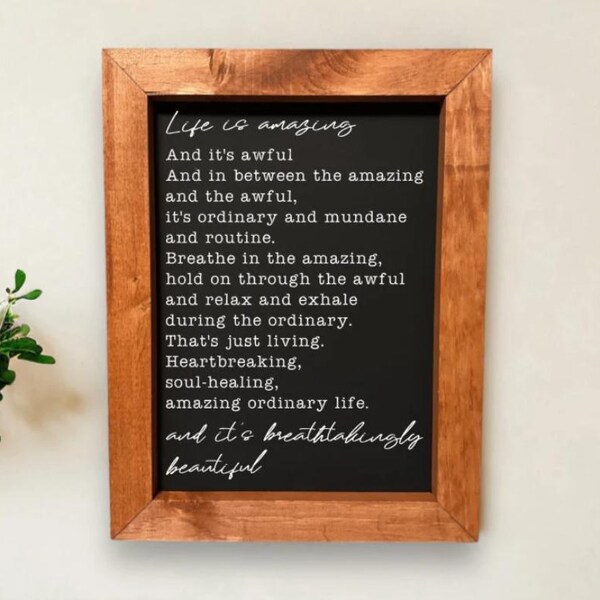 Life is amazing
And it's awful
And in between the amazing
and the awful,
it's ordinary and mundane
and routine.
Breathe in the amazing,
hold on through the awful
and relax and exhale
during the ordinary.
That's just living.
Heartbreaking,
soul-healing,
amazing ordinary life.
and it's breathtakingly
beautiful